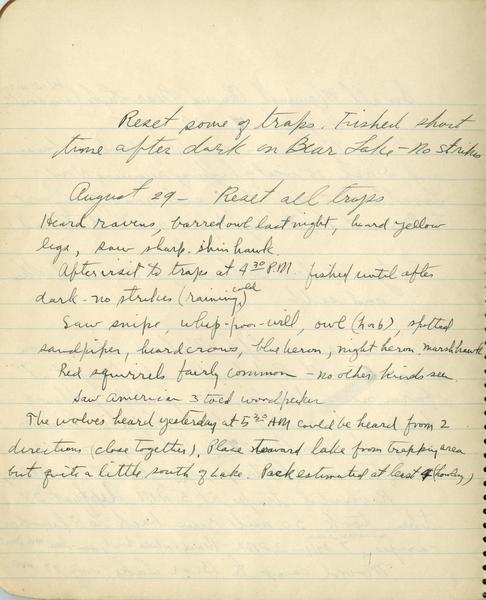 Reset some of traps. Fished short
time after dark on Bear Lake - No strikes
August 29 - Reset all traps
Heard ravens, barred owl last night, heard yellow
legs, saw sharp-shin hawk.
After visit to traps at 4 30 P.M fished until after
dark - no strikes (raining, cold)
Saw snipe, whip-poor-will, owl (hob), spotted
sandpiper, heard crows, blue heron, night heron, marsh hawk
Red squirrels fairly common - no other kinds seen.
Saw American 3 toed woodpecker
The wolves heard yesterday at 5 30 AM could be heard from 2
directions (close together), Place toward lake from trapping area
but quite a little south of Lake. Pack estimated at least 4 (howling)